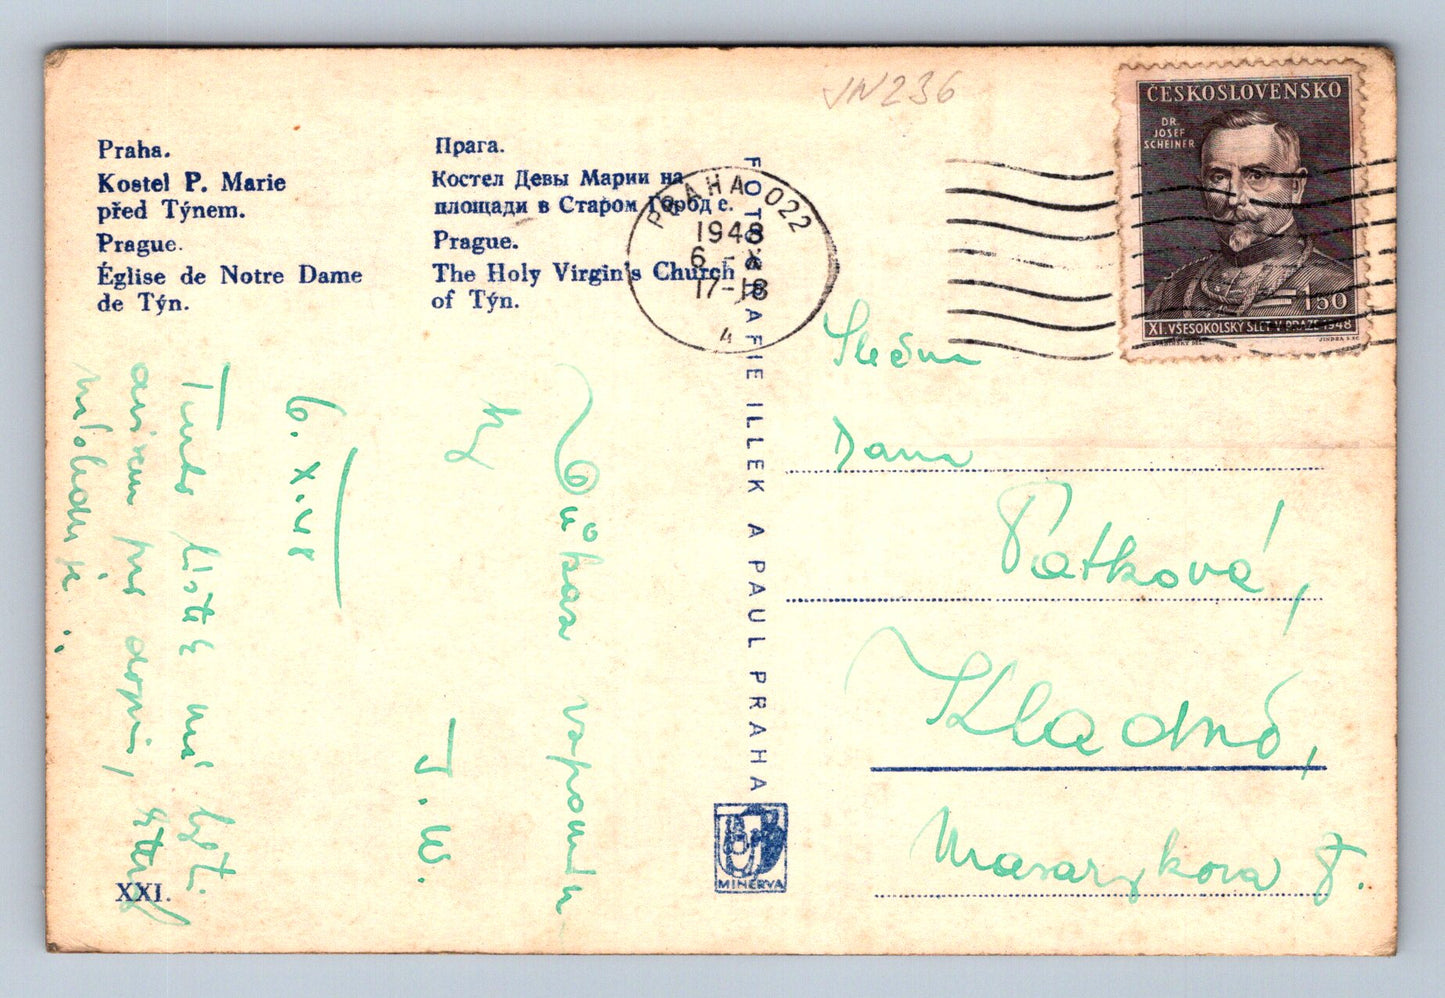 JN236
Praha.
Kostel P. Marie
před Týnem.
Prague.
Église de Notre Dame
de Týn.
Прага.
Костел Девы Марии на
площади в Старом Городе.
Prague.
The Holy Virgin's Church
of Týn.
PRAHA 022
1948
6
X
17-18
4
ČESKOSLOVENSKO
DR.
JOSEF
SCHEINER
1·50
XI. VŠESOKOLSKÝ SLET V PRAZE 1948
JINDRA SC.
FOTOGRAFIE ILLEK A PAUL PRAHA
MINERVA
XXI.
Důkaz vzpomínky
J. W.
6. X. 48
Tento lístek má být
pro dopis,
Slečna
Dana
Patková,
Kladno,
Masarykova 8.